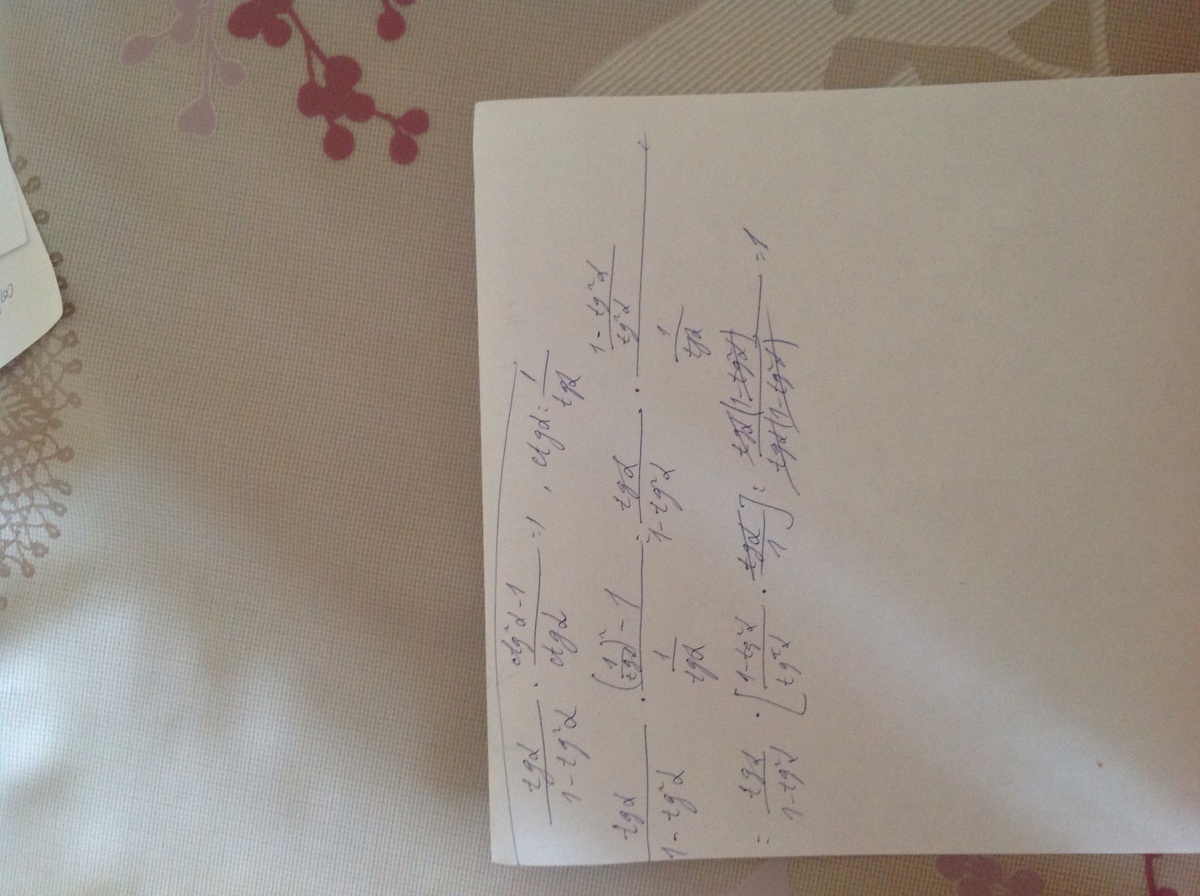 tgα/(1-tg²α) · (ctg²α-1)/ctgα =1, ctgα=1/tgα
tgα/(1-tg²α) · ((1/tgα)²-1)/(1/tgα) = tgα/(1-tg²α) · ((1-tg²α)/tg²α)/(1/tgα) =
= tgα/(1-tg²α) · [(1-tg²α)/tg²α · tgα/1] = tgα(1-tg²α)/tgα(1-tg²α) =1